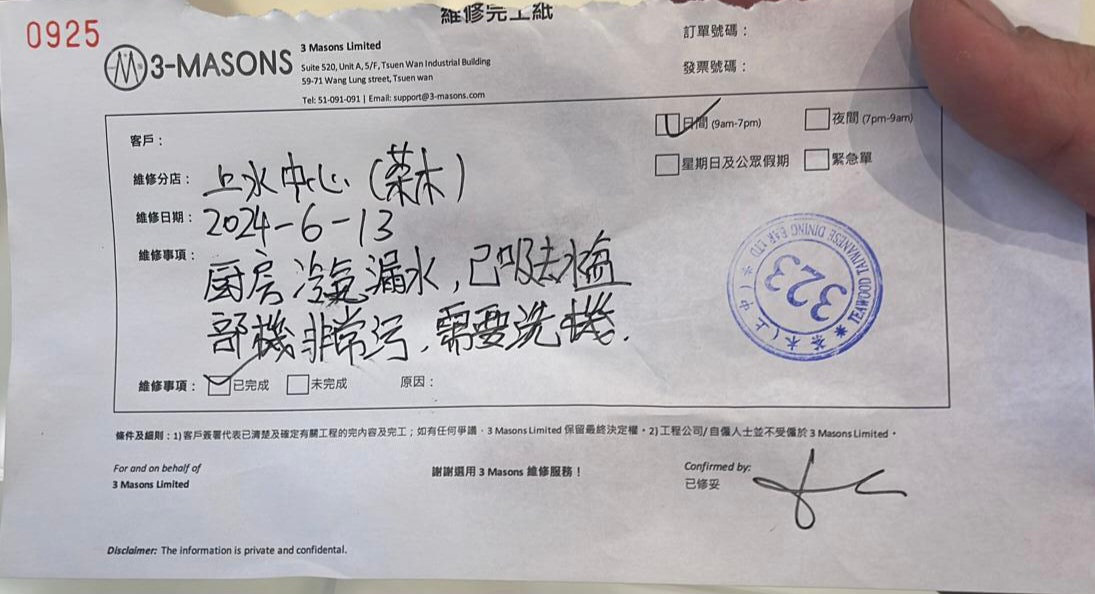 維修完工紙
0925
3-MASONS
3 Masons Limited
Suite 520, Unit A, 5/F, Tsuen Wan Industrial Building
59-71 Wang Lung street, Tsuen wan
Tel: 51-091-091 | Email: support@3-masons.com
訂單號碼：
發票號碼：
日間 (9am-7pm)
夜間 (7pm-9am)
星期日及公眾假期
緊急單
客戶：
維修分店： 上水中心 (茶木)
維修日期： 2024-6-13
維修事項： 厨房冷氣漏水，已吸去水盤
部機非常污，需要洗機.
TEAWOOD TAIWANESE DINING BAR LTD
茶木(上中)
323
維修事項： 已完成 未完成 原因：
條件及細則：1) 客戶簽署代表已清楚及確定有關工程的完內容及完工；如有任何爭議，3 Masons Limited 保留最終決定權。2) 工程公司/自僱人士並不受僱於 3 Masons Limited。
For and on behalf of
3 Masons Limited
謝謝選用 3 Masons 維修服務！
Confirmed by:
已修妥
Disclaimer: The information is private and confidental.